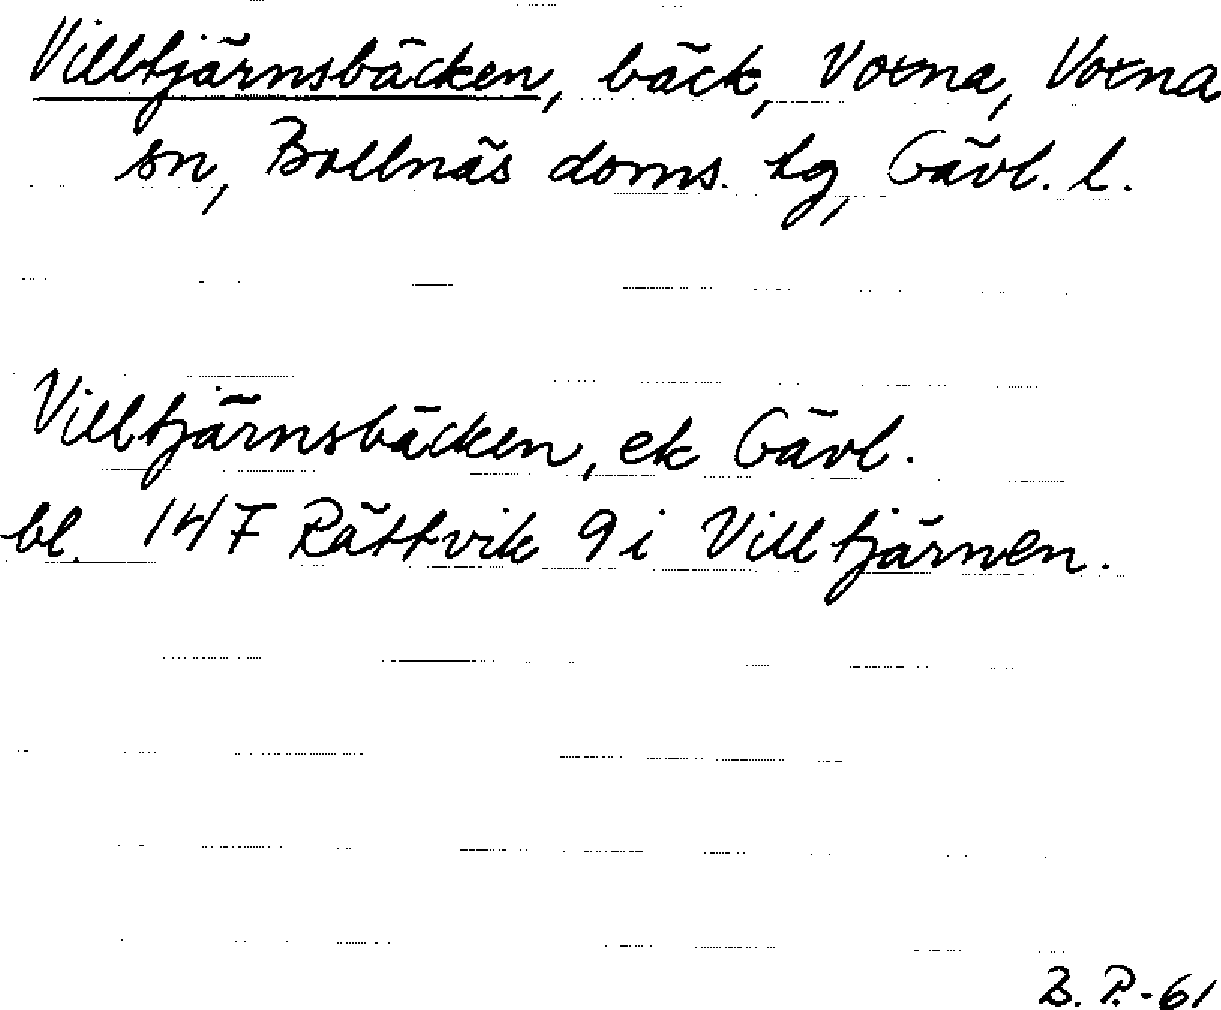 Villtjärnsbäcken, bäck, Voxna, Voxna
sn, Bollnäs doms. tg, Gävl. l.
Villtjärnsbäcken, ek Gävl.
bl. 14F Rättvik 9 i Villtjärnen.
B. P. -61